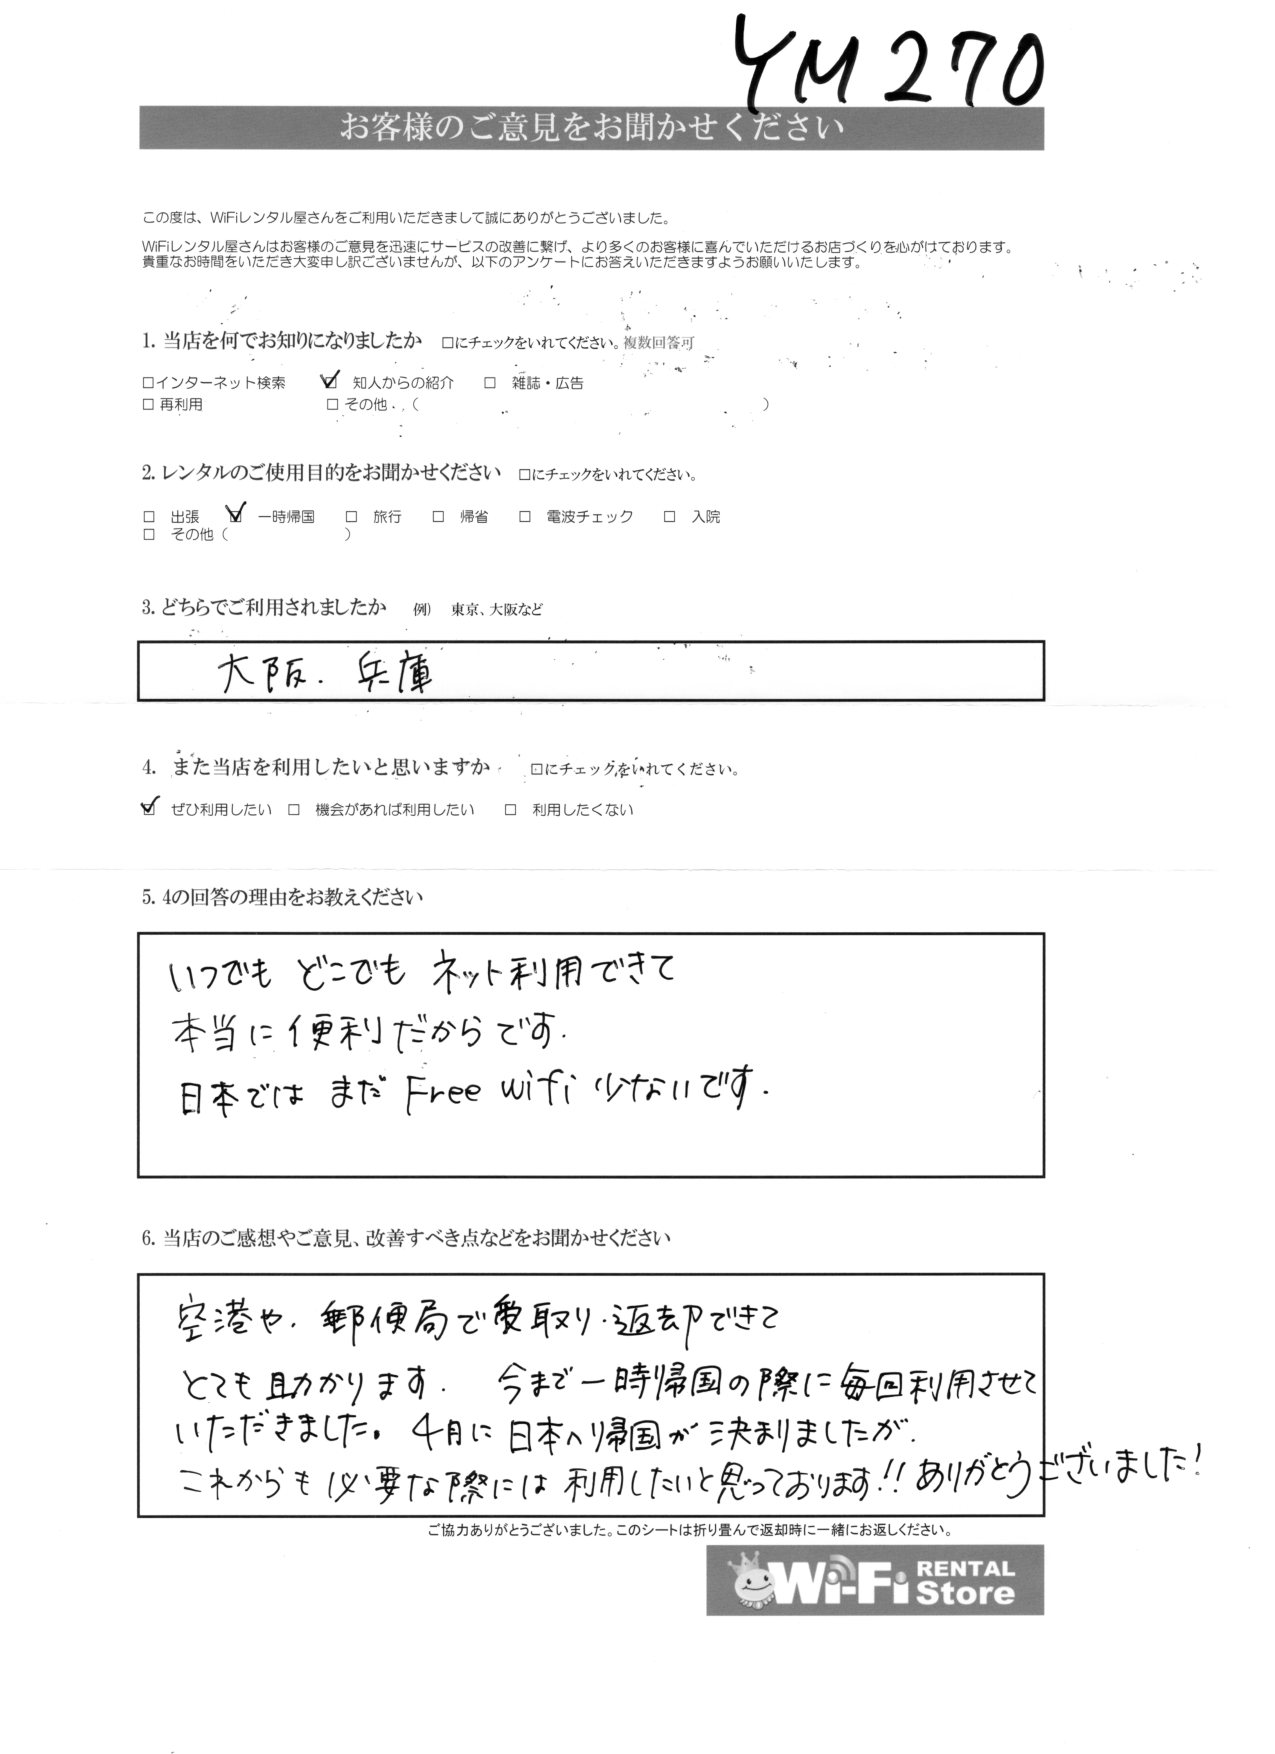 YM270
お客様のご意見をお聞かせください
この度は、WiFiレンタル屋さんをご利用いただきまして誠にありがとうございました。
WiFiレンタル屋さんはお客様のご意見を迅速にサービスの改善に繋げ、より多くのお客様に喜んでいただけるお店づくりを心がけております。
貴重なお時間をいただき大変申し訳ございませんが、以下のアンケートにお答えいただきますようお願いいたします。
1. 当店を何でお知りになりましたか □にチェックをいれてください。複数回答可
□インターネット検索 ☑ 知人からの紹介 □ 雑誌・広告
□ 再利用 □ その他 ( )
2. レンタルのご使用目的をお聞かせください □にチェックをいれてください。
□ 出張 ☑ 一時帰国 □ 旅行 □ 帰省 □ 電波チェック □ 入院
□ その他 ( )
3. どちらでご利用されましたか 例) 東京、大阪など
大阪. 兵庫
4. また当店を利用したいと思いますか □にチェックをいれてください。
☑ ぜひ利用したい □ 機会があれば利用したい □ 利用したくない
5. 4の回答の理由をお教えください
いつでも どこでも ネット利用できて
本当に便利だからです.
日本では まだ Free wifi 少ないです.
6. 当店のご感想やご意見、改善すべき点などをお聞かせください
空港や. 郵便局で受取り・返却できて
とても助かります. 今まで一時帰国の際に毎回利用させて
いただきました。4月に日本へ帰国が決まりましたが.
これからも必要な際には利用したいと思っております!! ありがとうございました!
ご協力ありがとうございました。このシートは折り畳んで返却時に一緒にお返しください。
Wi-Fi RENTAL Store